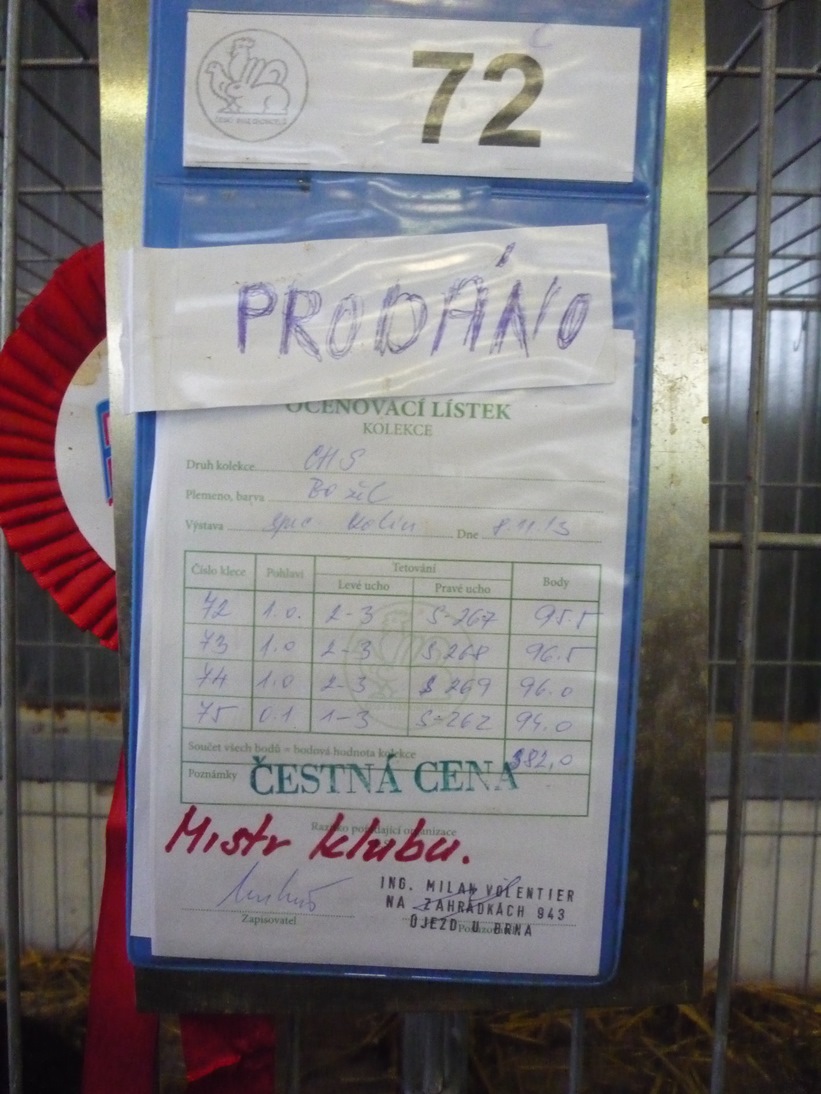 72
PRODÁNO
OCEŇOVACÍ LÍSTEK
KOLEKCE
Druh kolekce CHS
Plemeno, barva
Výstava spec. Kolín Dne 8.11.13
Číslo klece Pohlaví Tetování Body
Levé ucho Pravé ucho
72 1.0. 2-3 S-267 95.5
73 1.0 2-3 S 268 96.5
74 1.0 2-3 S 269 96.0
75 0.1. 1-3 S-262 94.0
Součet všech bodů = bodová hodnota kolekce 382,0
Poznámky ČESTNÁ CENA
Razítko pořádající organizace
Mistr klubu.
ING. MILAN VOLENTIER
NA ZAHRÁDKÁCH 943
ÚJEZD U BRNA
Zapisovatel